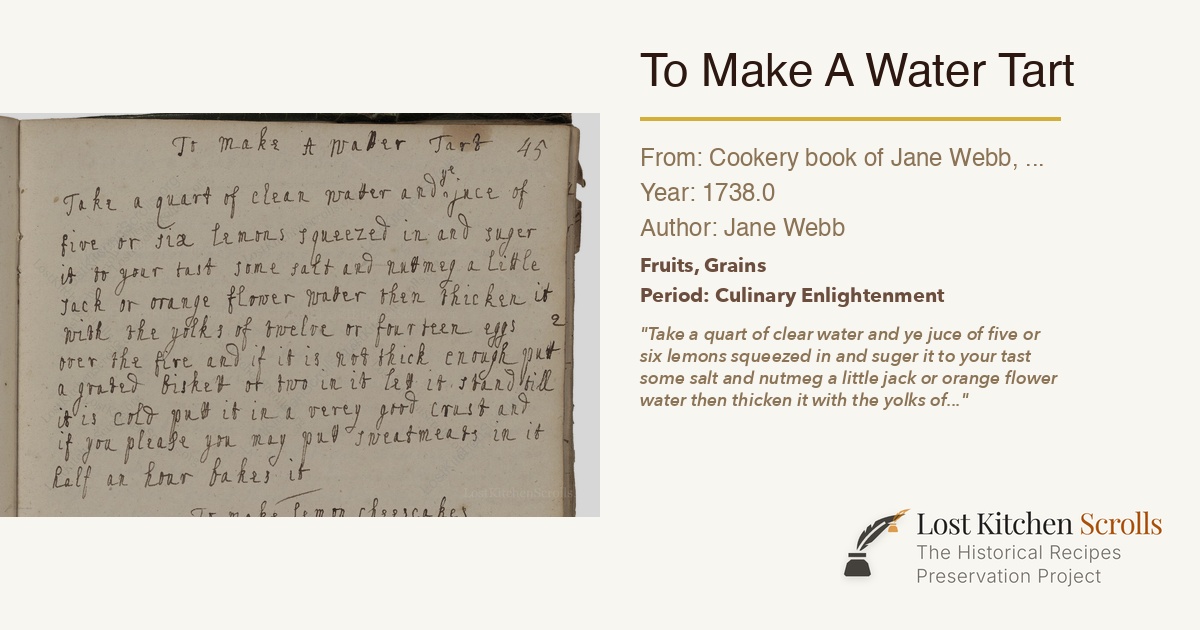 To make A water Tart 45
Take a quart of clean water and ye juce of
five or six lemons squeezed in and suger
it to your tast some salt and nutmeg a little
sack or orange flower water then thicken it
with the yolks of twelve or fourteen eggs 2
over the fire and if it is not thick enough putt
a grated biskett or two in it lett it stand till
it is cold putt it in a verey good crust and
if you please you may put sweatmeats in it
half an hour bakes it
To make lemon cheescakes
LostKitchenScrolls
To Make A Water Tart
From: Cookery book of Jane Webb, ...
Year: 1738.0
Author: Jane Webb
Fruits, Grains
Period: Culinary Enlightenment
"Take a quart of clear water and ye juce of five or
six lemons squeezed in and suger it to your tast
some salt and nutmeg a little jack or orange flower
water then thicken it with the yolks of..."
Lost Kitchen Scrolls
The Historical Recipes
Preservation Project